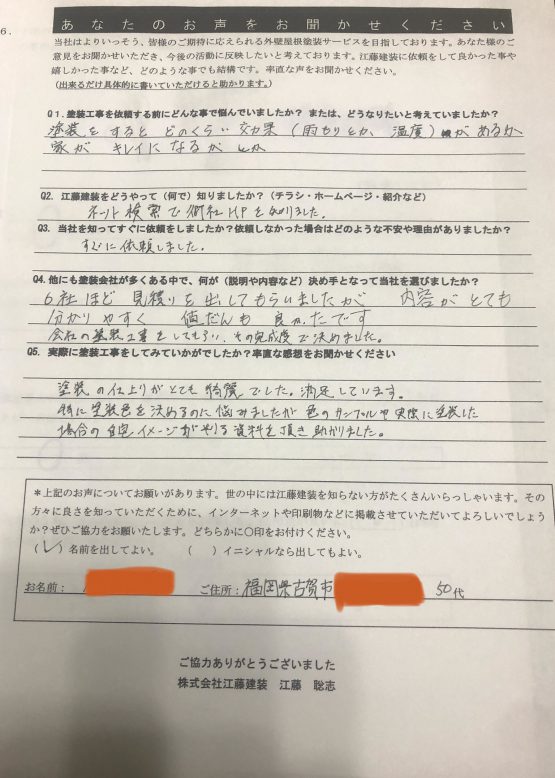 6.
あなたのお声をお聞かせください
当社はよりいっそう、皆様のご期待に応えられる外壁屋根塗装サービスを目指しております。あなた様のご
意見をお聞かせいただき、今後の活動に反映したいと考えております。江藤建装に依頼をして良かった事や
嬉しかった事など、どのような事でも結構です。率直な声をお聞かせください。
(出来るだけ具体的に書いていただけると助かります。)
Q1.塗装工事を依頼する前にどんな事で悩んでいましたか? または、どうなりたいと考えていましたか?
塗装をすると どのくらい効果(雨もりとか、温度)があるか
家が キレイになるが とか
Q2. 江藤建装をどうやって(何で)知りましたか?(チラシ・ホームページ・紹介など)
ネット検索で御社HPを知りました。
Q3. 当社を知ってすぐに依頼をしましたか?依頼しなかった場合はどのような不安や理由がありましたか?
すぐに依頼しました。
Q4.他にも塗装会社が多くある中で、何が(説明や内容など)決め手となって当社を選びましたか?
6社ほど 見積りを出してもらいましたが 内容がとても
分かりやすく 値だんも 良かたです
会社の塗装工事をしてもらい、その完成度で決めました。
Q5. 実際に塗装工事をしてみていかがでしたか?率直な感想をお聞かせください
塗装の仕上りがとても綺麗でした。満足しています。
特に塗装色を決めるのに悩みましたが色のサンプルや実際に塗装した
場合の自宅イメージがやる資料を頂き助かりました。
*上記のお声についてお願いがあります。世の中には江藤建装を知らない方がたくさんいらっしゃいます。その
方々に良さを知っていただくために、インターネットや印刷物などに掲載させていただいてよろしいでしょう
か?ぜひご協力をお願いします。どちらかに〇印をお付けください。
(✓)名前を出してよい。 ( )イニシャルなら出してもよい。
お名前: ご住所:福岡県古賀市 50代
ご協力ありがとうございました
株式会社江藤建装 江藤 聡志